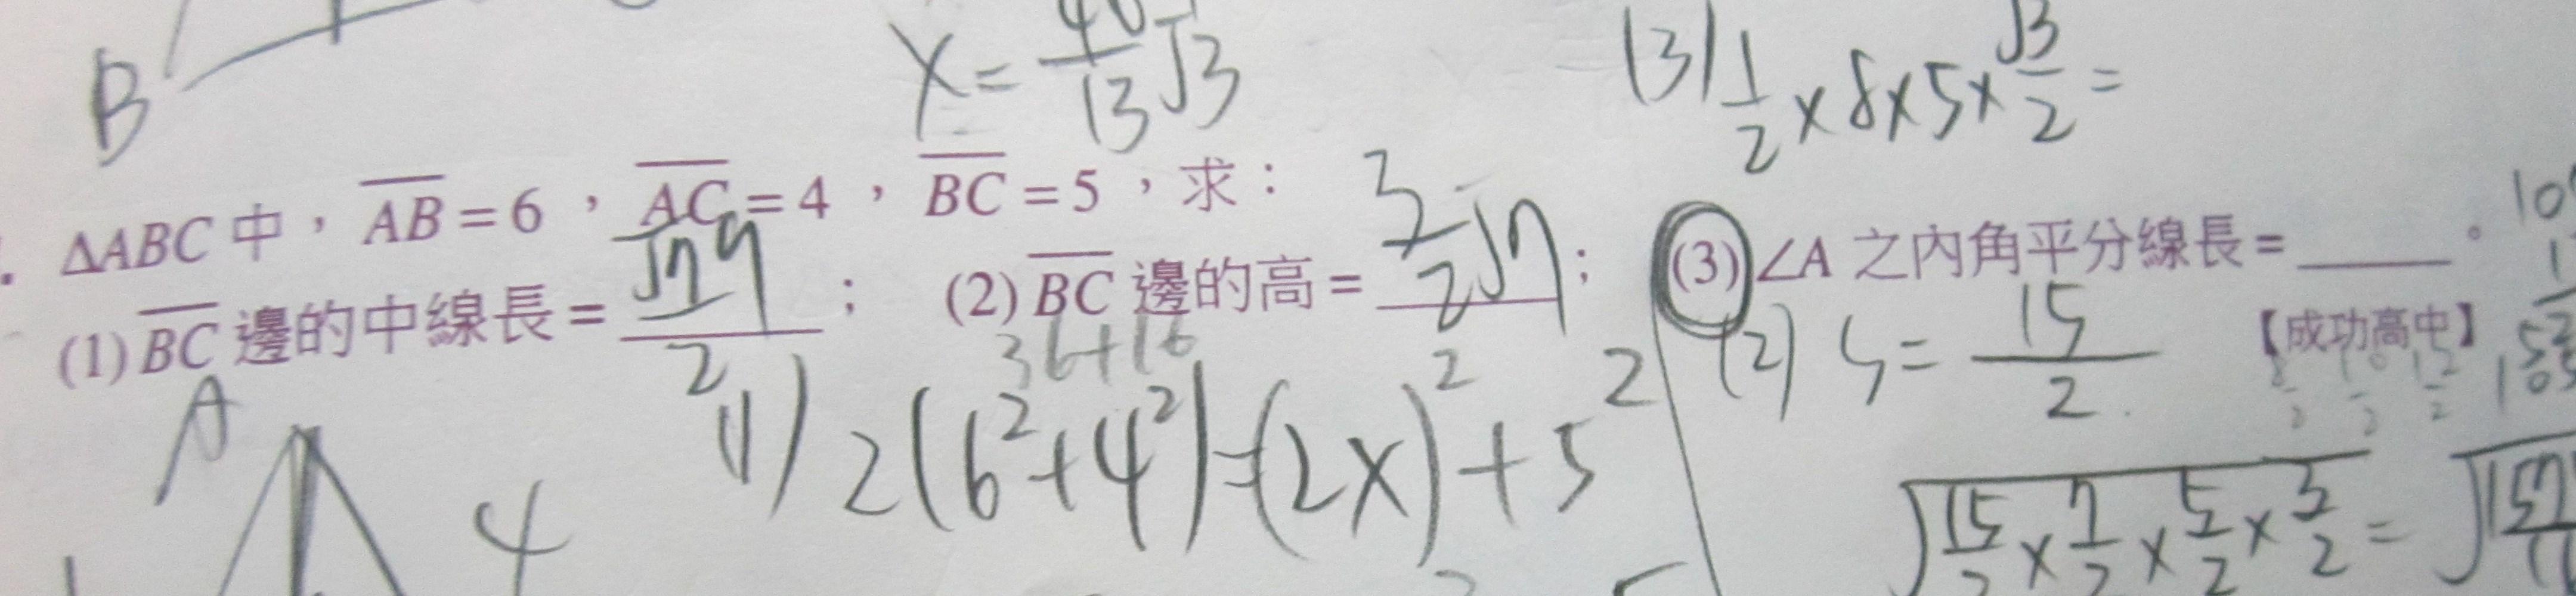 B
X = 40/13 √3
(3) 1/2 × 8 × 5 × √3/2 =
ΔABC 中，AB = 6，AC = 4，BC = 5，求：
(1) BC 邊的中線長 = √79/2； (2) BC 邊的高 = 3/2 √7； (3) ∠A 之內角平分線長 = ____。
【成功高中】
36+16
A
4
(1) 2(6²+4²) = (2x)² + 5²
(2) S = 15/2
√15/2 × 7/2 × 5/2 × 3/2 =